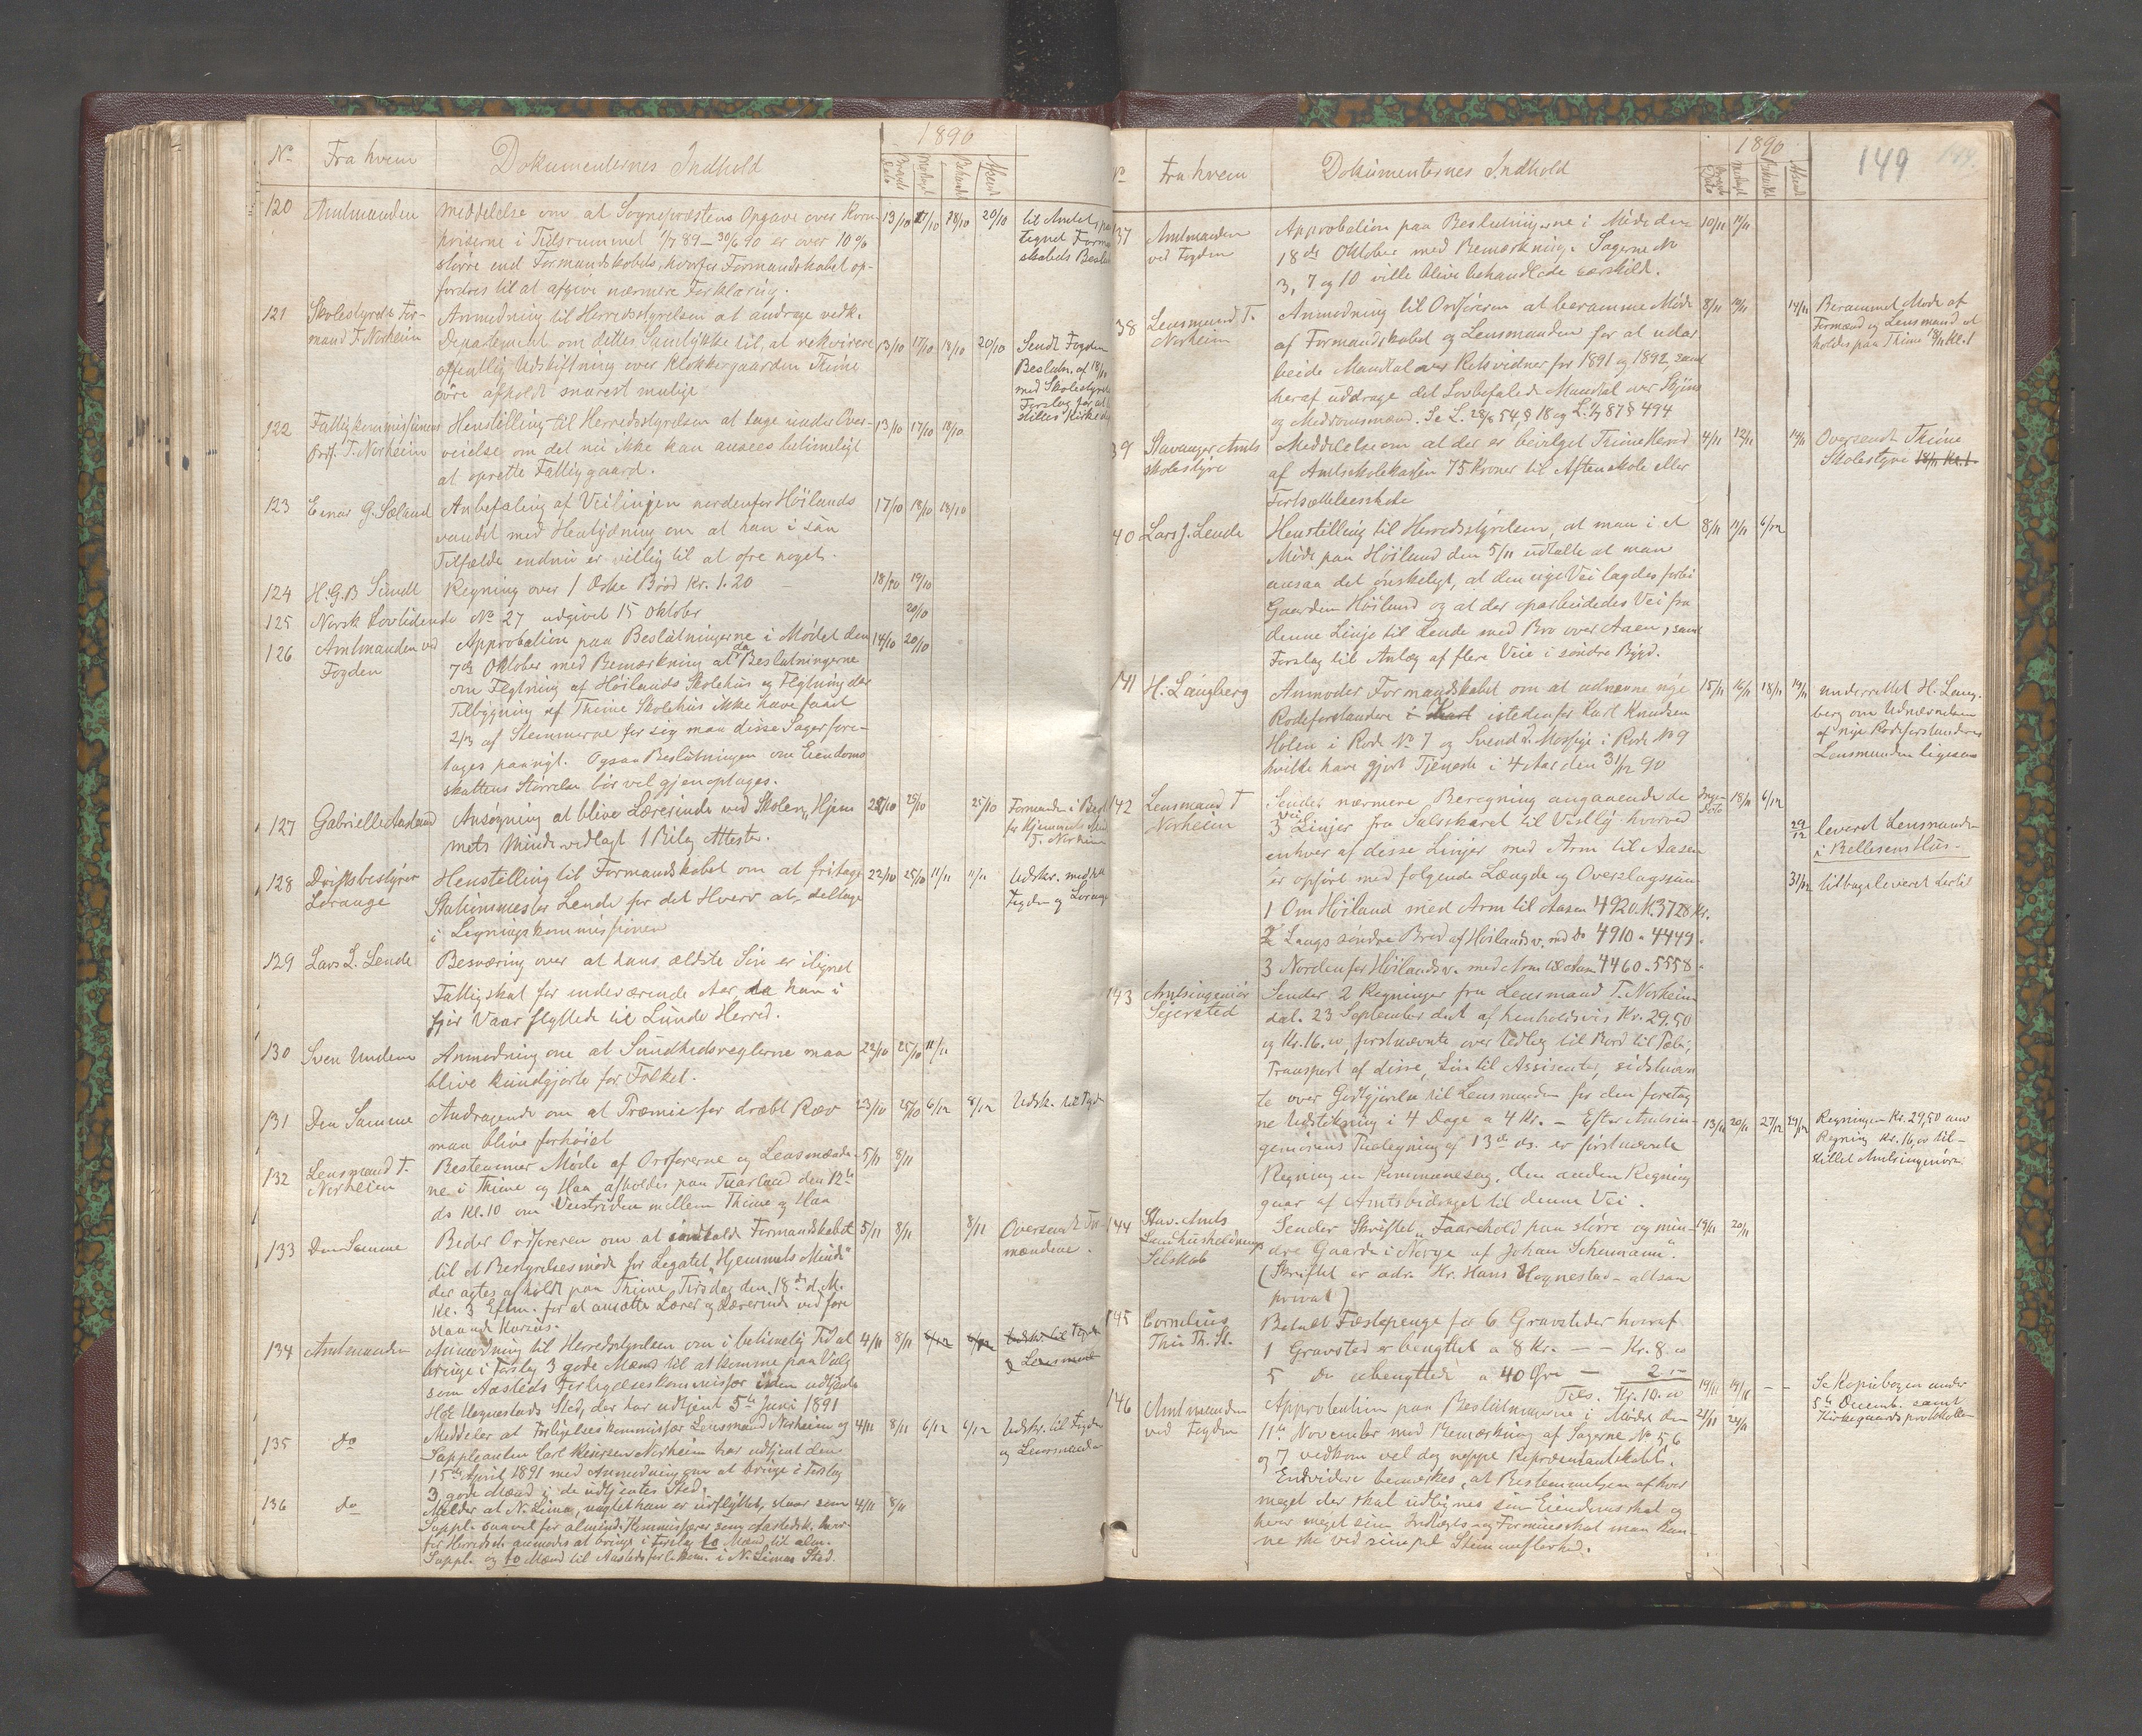 1890
No Fra hvem Dokumenternes Indhold Brevets Dato Modtagt Behandlet Afsendt
120 Amtmanden Meddelelse om at Sognepræstens Opgave over Korn- 13/10 17/10 18/10 20/10 til Amtet
priserne i Tidsrummet 1/7 89 – 30/6 90 er over 10%
større end Formandskabets, hvorfor Formandskabet op-
fordres til at afgive nærmere Forklaring.
121 Skolestyrets For- Anmodning til Herredsstyrelsen at andrage vedk.
mand T. Norheim Departement om dettes Samtykke til, at rekvirere 13/10 17/10 18/10 20/10 Sendt Fogden
offentlig Udskiftning over Klokkergaarden Thime Beslutn. af 18/10
øvre afholdt snarest mulig med Skolestyrets
122 Fattigkommissionens Henstilling til Herredsstyrelsen at tage under Over- 13/10 17/10 18/10
Ordf. T. Norheim veielse om det nu ikke kan ansees betimeligt
at oprette Fattiggaard.
123 Enar G. Sæland Anbefaling af Veilinjen nordenfor Høilands 17/10 18/10 18/10
vandet med Hentydning om at han i saa
Tilfælde endnu er villig til at ofre noget.
124 H.G.B Sundt Regning over 1 Æske Brød Kr. 1.20 18/10 19/10
125 Norsk Lovtidende No 27 udgivet 15 Oktober 20/10
126 Amtmanden ved Approbation paa Beslutningerne i Mødet den 14/10 20/10
Fogden 7de Oktober med Bemærkning at da Beslutningerne
om Flytning af Høilands Skolehus og Flytning der
Tilbygning af Thime Skolehus ikke have faaet
2/3 af Stemmerne for sig maa disse Sager fore-
tages paanyt. Ogsaa Beslutningen om Eiendoms
skattens Størrelse bør vel gjenoptages.
127 Gabrielle Aasland Ansøgning at blive Lærerinde ved Skolen „Hjem 25/10 25/10 Formanden i Best.
mets Minde vedlagt 1 Bilag Attester. T. Norheim
128 Driftsbestyrer Henstilling til Formandskabet om at fritage 22/10 25/10 11/11 11/11 Udskr. meddelt
Lorange Stationsmester Lende for det Hverv at deltage Fogden og Lorange
i Ligningskommissionen
129 Lars L. Lende Besværing over at hans ældste Søn er ilignet
Fattigskat for indeværende Aar da han i
fjor Vaar flyttede til Lunde Herred.
130 Sven Undem Anmodning om at Sundhedsreglerne maa 22/10 25/10 11/11
blive kundgjorte for Folket.
131 Den Samme Andragende om at Præmie for dræbt Ræv 23/10 25/10 6/12 8/12 Udsk. til Fogden
maa blive forhøiet
132 Lensmand T. Bestemmer Møde af Ordførerne og Lensmænde- 5/11 8/11
Norheim ne i Thime og Haa afholdes paa Tuarland den 12te
ds Kl. 10 om Veistriden mellem Thime og Haa
133 Den Samme Beder Ordføreren om at indkalde Formandskabet 5/11 8/11 8/11 Oversendt For-
til et Bestyrelsesmøde for Legatet „Hjemmets Minde" mændene.
der agtes afholdt paa Thime, Tirsdag den 18de d. M.
Kl. 3 Eftm. for at ansætte Lærer og Lærerinde ved fore
staaende Kursus.
134 Amtmanden Anmodning til Herredsstyrelsen om i betimelig Tid at 4/11 8/11 6/12 6/12 Udskr. til Fogden
bringe i Forslag 3 gode Mænd til at komme paa Valg og Lensmand
som Aasteds Forligelseskommissær iden udtjente
Hognestads Sted, der har udtjent 5te Juni 1891
135 do Meddeler at Forligelseskommissær Lensmand Norheim og 4/11 8/11 6/12 6/12 Udskr. til Fogden
Suppleanten Carl Norheim har udtjent den og Lensmanden
15de April 1891 med Anmodning om at bringe i Forslag
3 gode Mænd i de udtjentes Sted.
136 do Melder at N. Lima, uagtet han er udflyttet, staar som 4/11 8/11
Suppl. saavel for almind. Kommissærer som Aastedsk. hvor-
for Herredsst. anmodes at bringe i Forslag to Mænd til alm.
Suppl. og to Mænd til Aastedsforl.kom. i N. Limas Sted.
1890 149
No Fra hvem Dokumenternes Indhold Brevets Dato Modtagt Behandlet Afsendt
137 Amtmanden Approbation paa Beslutningerne i Møde den 10/11 11/11
ved Fogden 18de Oktober med Bemærkning. Sagerne No
3, 7 og 10 ville blive behandlede særskilt.
38 Lensmand T. Anmodning til Ordføreren at beramme Møde 8/11 11/11 14/11 Berammet Møde af
Norheim af Formandskabet og Lensmanden for at udar Formænd og Lensmand at
beide Mandtal over Retsvidner for 1891 og 1892 samt holdes paa Thime 18/11 Kl. 1
heraf uddrage det Lovbefalede Mandtal over Skjøns
og Meddomsmænd. Se L. 28/8 54, § 18 og L. 1/7 87 § 494
39 Stavanger Amts Meddelelse om at der er bevilget Thime Herred 4/11 12/11 14/11 Oversendt Thime
skolestyre af Amtsskolekassen 75 Kroner til Aftenskole eller Skolestyre 18/11 Kl. 1.
Fortsættelsesskole
40 Lars J. Lende Henstilling til Herredsstyrelsen, at man i et 8/11 11/11 6/12
Møde paa Høiland den 5/11 udtalte at man
ansaa det ønskeligt, at den nye Vei lagdes forbi
Gaarden Høiland og at der oparbeidedes Vei fra
denne Linje til Lende med Bro over Aaen, samt
Forslag til Anlæg af flere Veie i søndre Bygd.
141 H. Langberg Anmoder Formandskabet om at udnævne nye 15/11 16/11 18/11 19/11 underrettet H. Lang-
Rodeforstandere i Karl istedenfor Karl Knudsen berg om Udnævnelsen
Holen i Rode No 7 og Svend Mossige i Rode No 9 af nye Rodeforstandere
hvilke have gjort Tjeneste i 4 Aar den 31/12 90 Lensmanden ligesaa
142 Lensmand T Sender nærmere Beregning angaaende de Ingen Dato 18/11 6/12
Norheim 3 Vei Linjer fra Salsskaret til Vestly hvorved 29/12 leveret Lensmanden
enhver af disse Linjer med Arm til Aasen i Bellesens Hus.
er opført med følgende Længde og Overslagssum 31/12 tilbageleveret hertil
1 Om Høiland med Arm til Aasen 4920 M. 3728 Kr.
2 Langs søndre Bred af Høilandsv. md do 4910 " 4449 "
3 Nordenfor Høilandsv. med Arm til Aasen 4460 " 5558 "
143 Amtsingeniør Sender 2 Regninger fra Lensmand T. Norheim
Sejersted dat. 23 September d.A. af henholdsvis Kr. 29.50
og Kr. 16.00, førstnævnte over Udlæg til Bord til Pæle,
Transport af disse, Løn til Assisenter, sidstnævn
te over Godtgjørelse til Lensmanden for den foretag
ne Udstikning i 4 Dage a 4 Kr. – Efter Amtsin- 13/11 20/11 27/12 29/12 Regningen Kr. 29,50 anv
geniørens Paategning af 13de ds. er førstnævnte Regning Kr. 16,00 til-
Regning en Kommunesag, den anden Regning stillet Amtsingeniøren
gaar af Amtsbidraget til denne Vei.
144 Stav. Amts Sender Skriftet „Faarehold paa større og min- 19/11 20/11
Landhusholdnings dre Gaarde i Norge af Johan Schumann".
Selskab (Skriftet er adr. Hr. Hans Hognestad – altsaa
privat)
145 Cornelius Betalt Fæstepenge for 6 Gravsteder hvoraf
Thu Th. St. 1 Gravsted er benyttet a 8 Kr. – – Kr. 8.00
5 do ubenyttede a 40 Øre – 2.00
Tils. Kr. 10.00 19/11 19/11 – – Se Kopibogen under
146 Amtmanden Approbation paa Beslutningerne i Mødet den 21/11 24/11 5te Decemb. samt
ved Fogden 11te November med Bemærkning af Sagerne No 5, 6 Kirkegaardsprotokollen
og 7 vedkom vel dog neppe Repræsentantskabet.
Endvidere bemærkes, at Bestemmelsen af hvor
meget der skal udlignes som Eiendomsskat og
hvor meget som Indtægts- og Formuesskat maa kun-
ne ske ved simpel Stemmeflerhed.